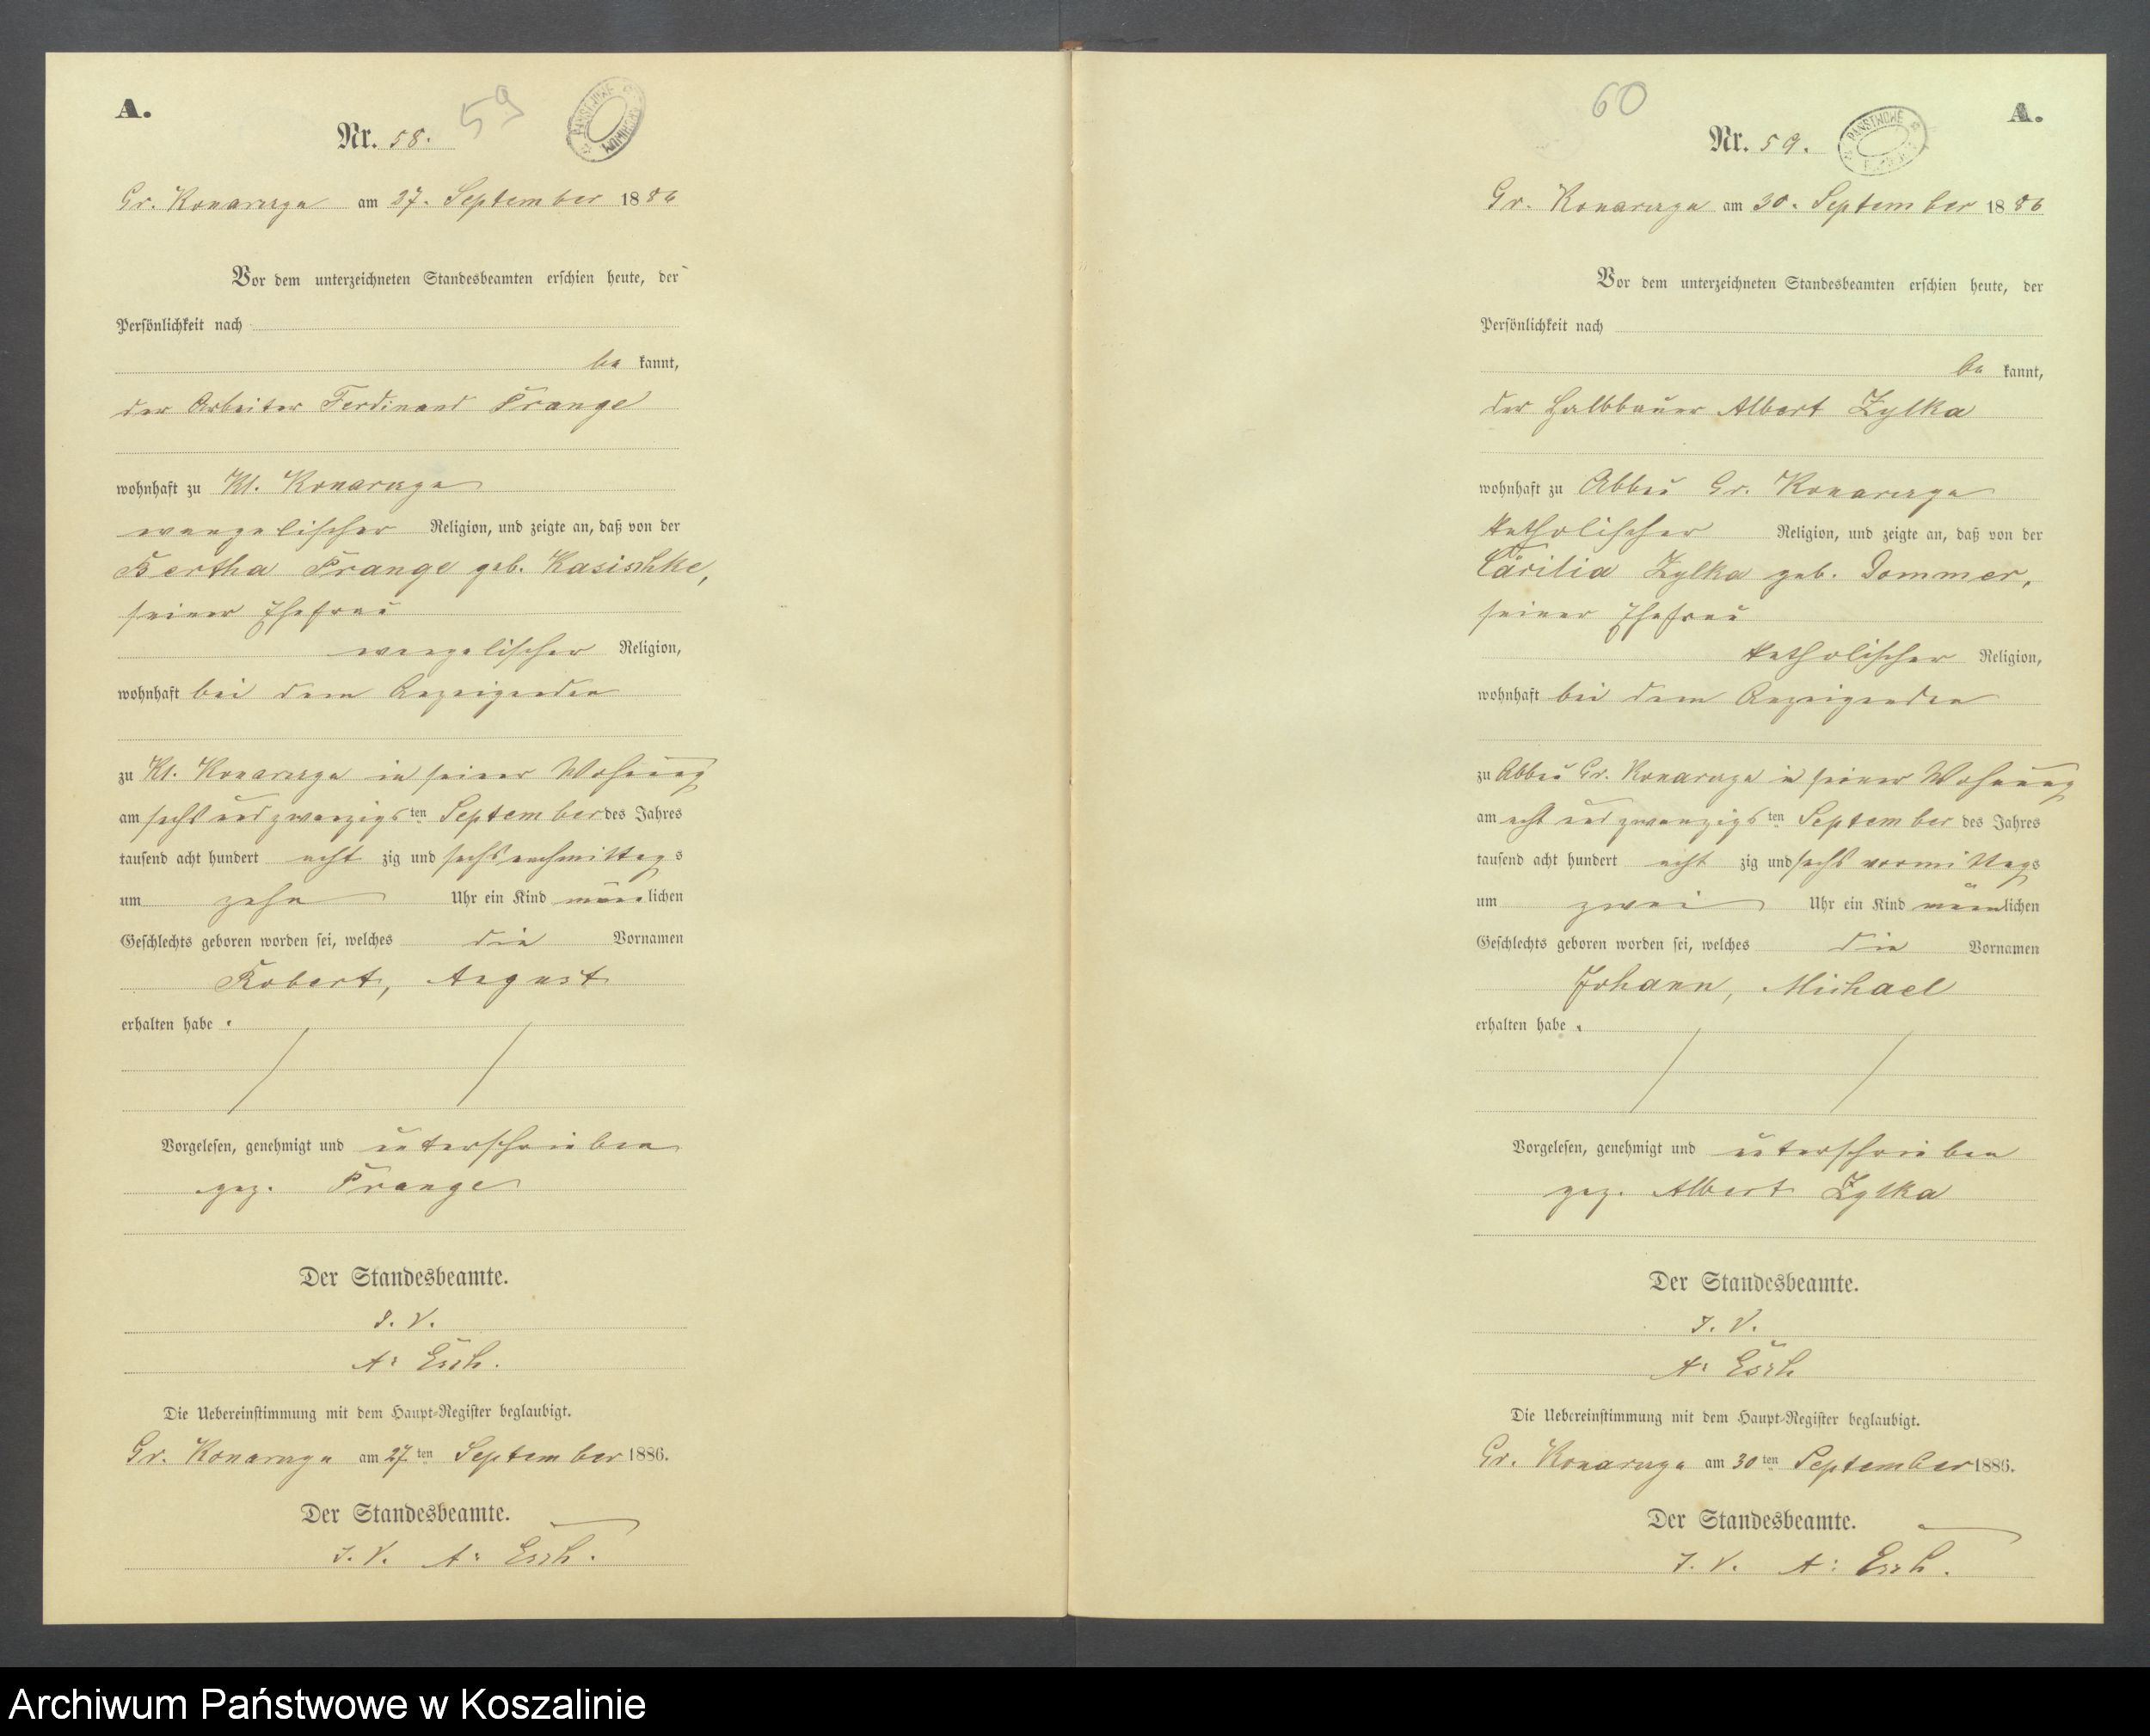 A.
Nr. 58.
59
Gr. Konarzyn am 27. September 1886
Vor dem unterzeichneten Standesbeamten erschien heute, der
Persönlichkeit nach
be kannt,
der Arbeiter Ferdinand Prange
wohnhaft zu Kl. Konarzyn
evangelischer Religion, und zeigte an, daß von der
Bertha Prange geb. Kasischke,
seiner Ehefrau
evangelischer Religion,
wohnhaft bei dem Anzeigenden
zu Kl. Konarzyn in seiner Wohnung
am sechs und zwanzigs ten September des Jahres
tausend acht hundert acht zig und sechs nachmittags
um zehn Uhr ein Kind männlichen
Geschlechts geboren worden sei, welches die Vornamen
Robert, August
erhalten habe.
Vorgelesen, genehmigt und unterschrieben
gez. Prange
Der Standesbeamte.
J. V.
A. Esch.
Die Uebereinstimmung mit dem Haupt-Register beglaubigt.
Gr. Konarzyn am 27 ten September 1886.
Der Standesbeamte.
J. V. A. Esch.
60
A.
Nr. 59.
PAŃSTWOWE
Gr. Konarzyn am 30. September 1886
Vor dem unterzeichneten Standesbeamten erschien heute, der
Persönlichkeit nach
be kannt,
der Halbbauer Albert Zylka
wohnhaft zu Abbau Gr. Konarzyn
katholischer Religion, und zeigte an, daß von der
Cäcilia Zylka geb. Dommer,
seiner Ehefrau
katholischer Religion,
wohnhaft bei dem Anzeigenden
zu Abbau Gr. Konarzyn in seiner Wohnung
am acht und zwanzigs ten September des Jahres
tausend acht hundert acht zig und sechs vormittags
um zwei Uhr ein Kind männlichen
Geschlechts geboren worden sei, welches die Vornamen
Johann, Michael
erhalten habe.
Vorgelesen, genehmigt und unterschrieben
gez. Albert Zylka
Der Standesbeamte.
J. V.
A. Esch
Die Uebereinstimmung mit dem Haupt-Register beglaubigt.
Gr. Konarzyn am 30 ten September 1886.
Der Standesbeamte.
J. V. A. Esch.
Archiwum Państwowe w Koszalinie